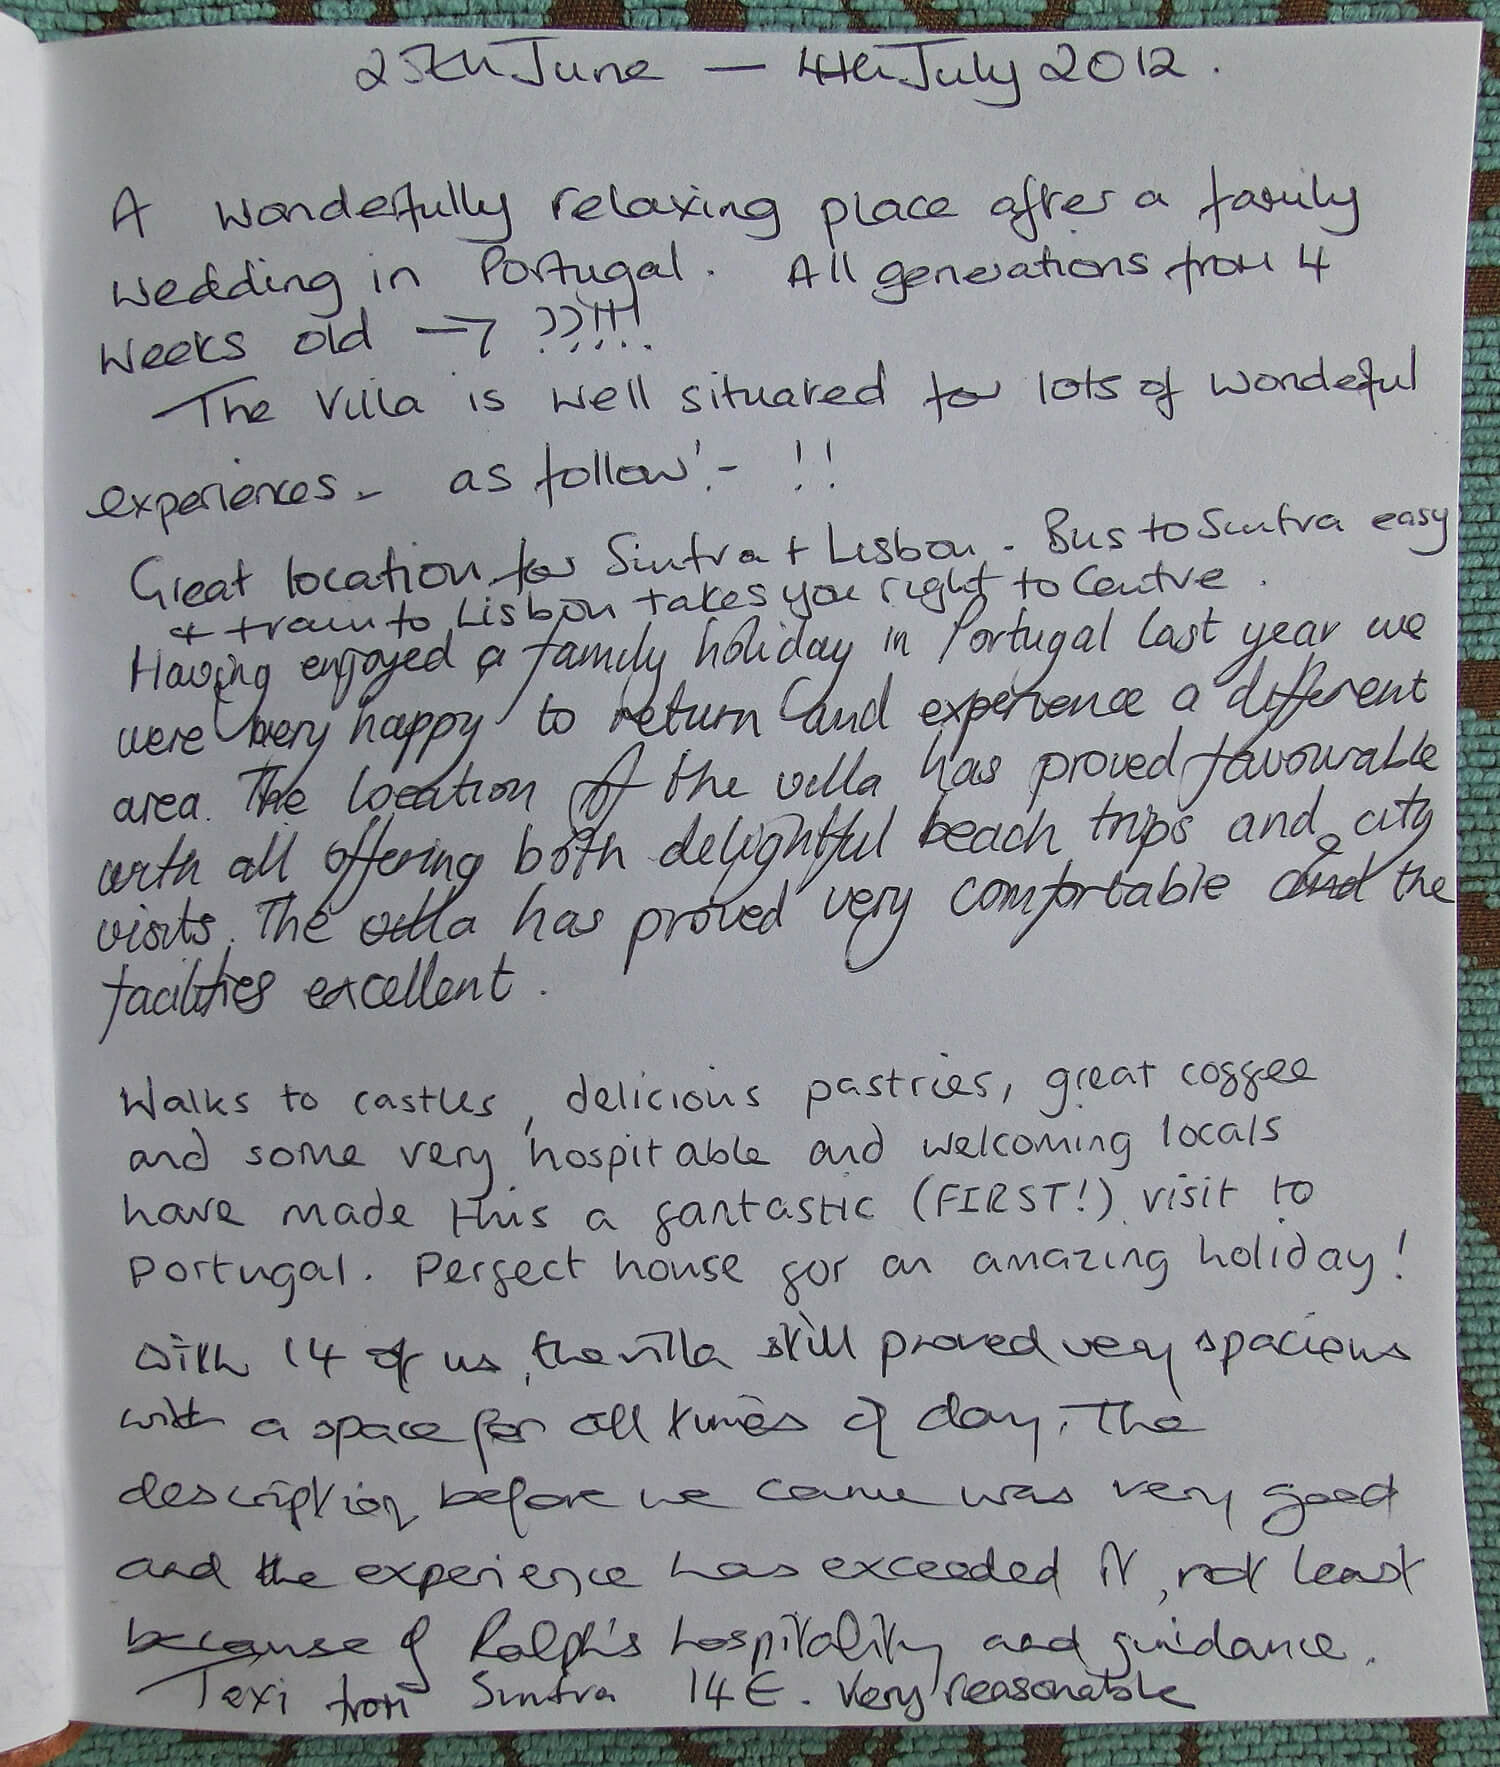 25th June — 4th July 2012.
A wonderfully relaxing place after a family
wedding in Portugal. All generations from 4
weeks old → ??!!!!
The Villa is well situated for lots of wondeful
experiences - as follow:- !!
Great location for Sintra + Lisbon. Bus to Sintra easy
+ train to Lisbon takes you right to Centre.
Having enjoyed a family holiday in Portugal last year we
were very happy to return and experience a different
area. The location of the villa has proved favourable
with all offering both delightful beach trips and city
visits. The villa has proved very comfortable and the
facilities excellent.
Walks to castles, delicious pastries, great coffee
and some very hospitable and welcoming locals
have made this a fantastic (FIRST!) visit to
Portugal. Perfect house for an amazing holiday!
With 14 of us, the villa still proved very spacious
with a space for all times of day. The
description before we came was very good
and the experience has exceeded it, not least
because of Ralph's hospitality and guidance.
Texi from Sintra 14€. Very reasonable